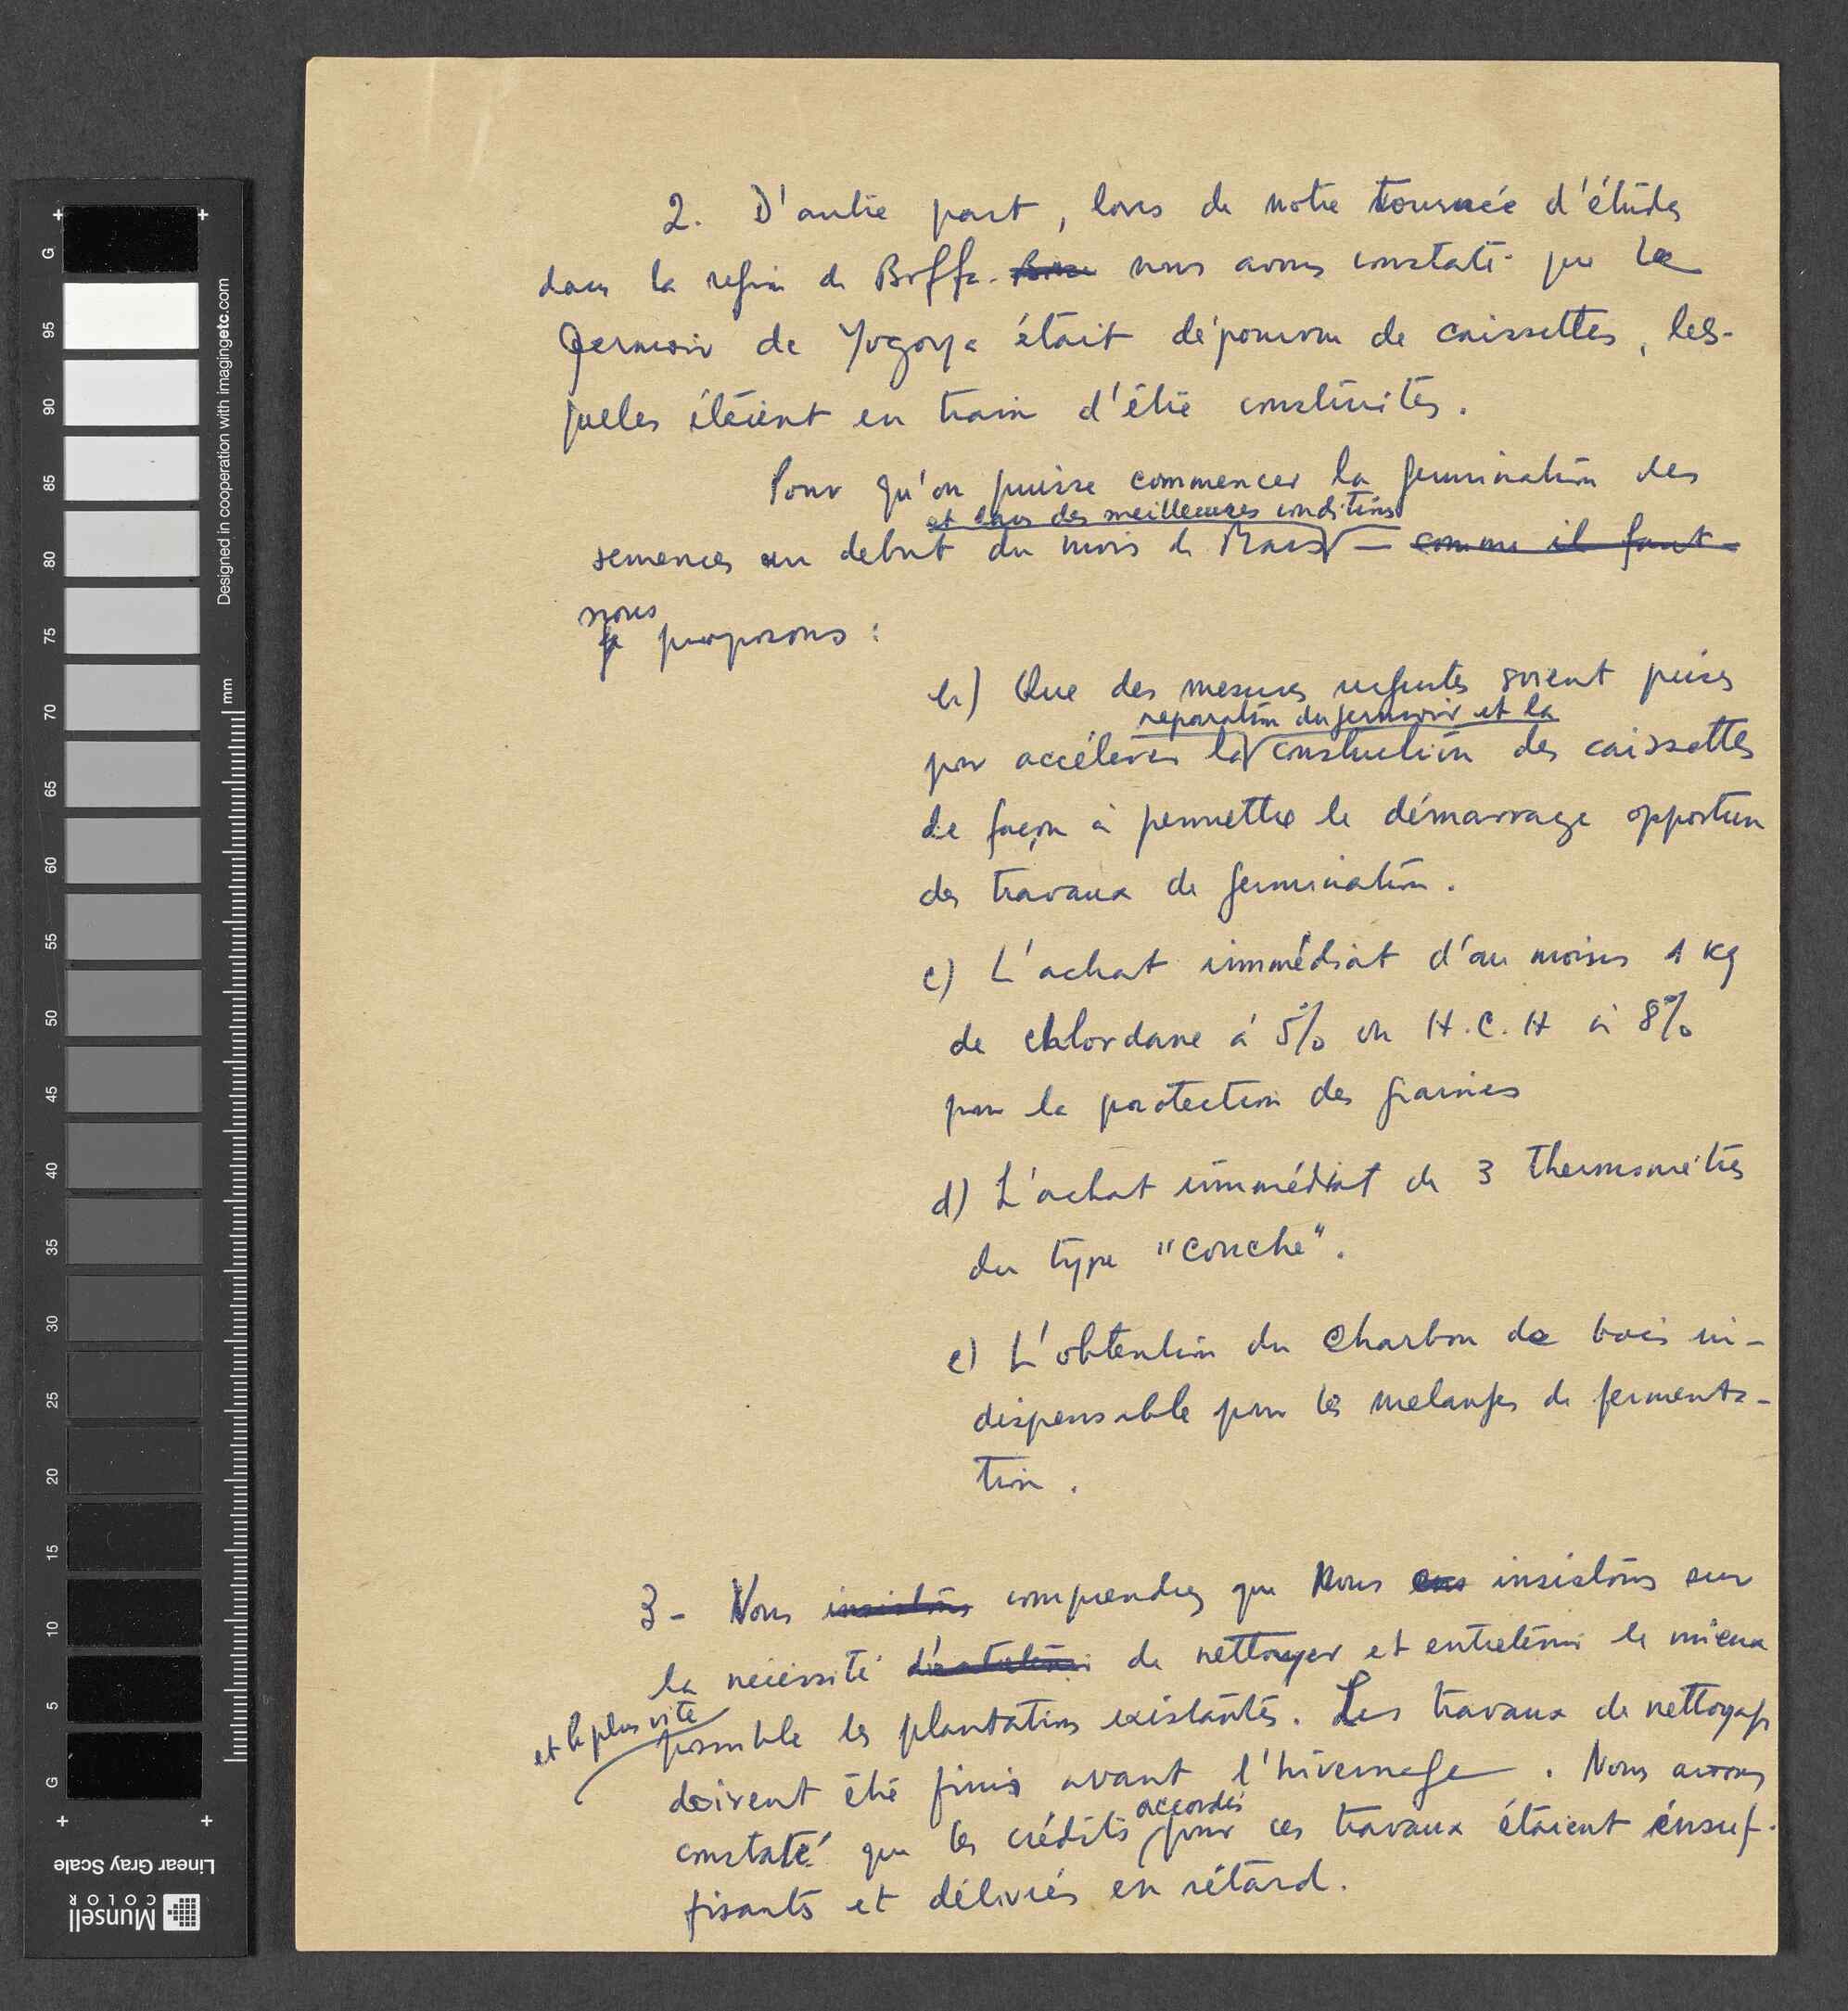 2. D'autre part, lors de notre tournée d'études
dans la region de Boffa nous avons constaté que le
Germoir de Yogoya était dépourvu de caissettes, les-
quelles étéient en train d'être construites.
Pour qu'on puisse commencer la germination des
et dans des meilleures conditions
semences au debut du mois de Mars — comme il faut -
nous
je proposons :
b) Que des mesures urgentes soient prises
reparation du germoir et la
pour accélérer la construction des caissettes
de façon à permettre le démarrage opportun
des travaux de germination.
c) L'achat immédiat d'au moins 1 Kg
de chlordane à 5% ou H.C.H à 8%
pour la protection des graines
d) L'achat immédiat de 3 Thermomètres
du type "couche".
e) L'obtention du Charbon de bois in-
dispensable pour les melanges de fermenta-
tion.
3- Vous insistons comprendrez que Nous insistons sur
la necéssité d'entretenir de nettoyer et entretenir le mieux
et le plus vite
possible les plantations existantes. Les travaux de nettoyage
doivent être finis avant l'hivernage. Nous avons
accordés
constaté que les crédits pour ces travaux étaient insuf-
fisants et délivrés en rétard.
Designed in cooperation with imagingetc.com
mm
G
95
90
85
80
75
70
65
60
55
50
45
40
35
30
25
20
15
10
5
G
Linear Gray Scale
Munsell
COLOR